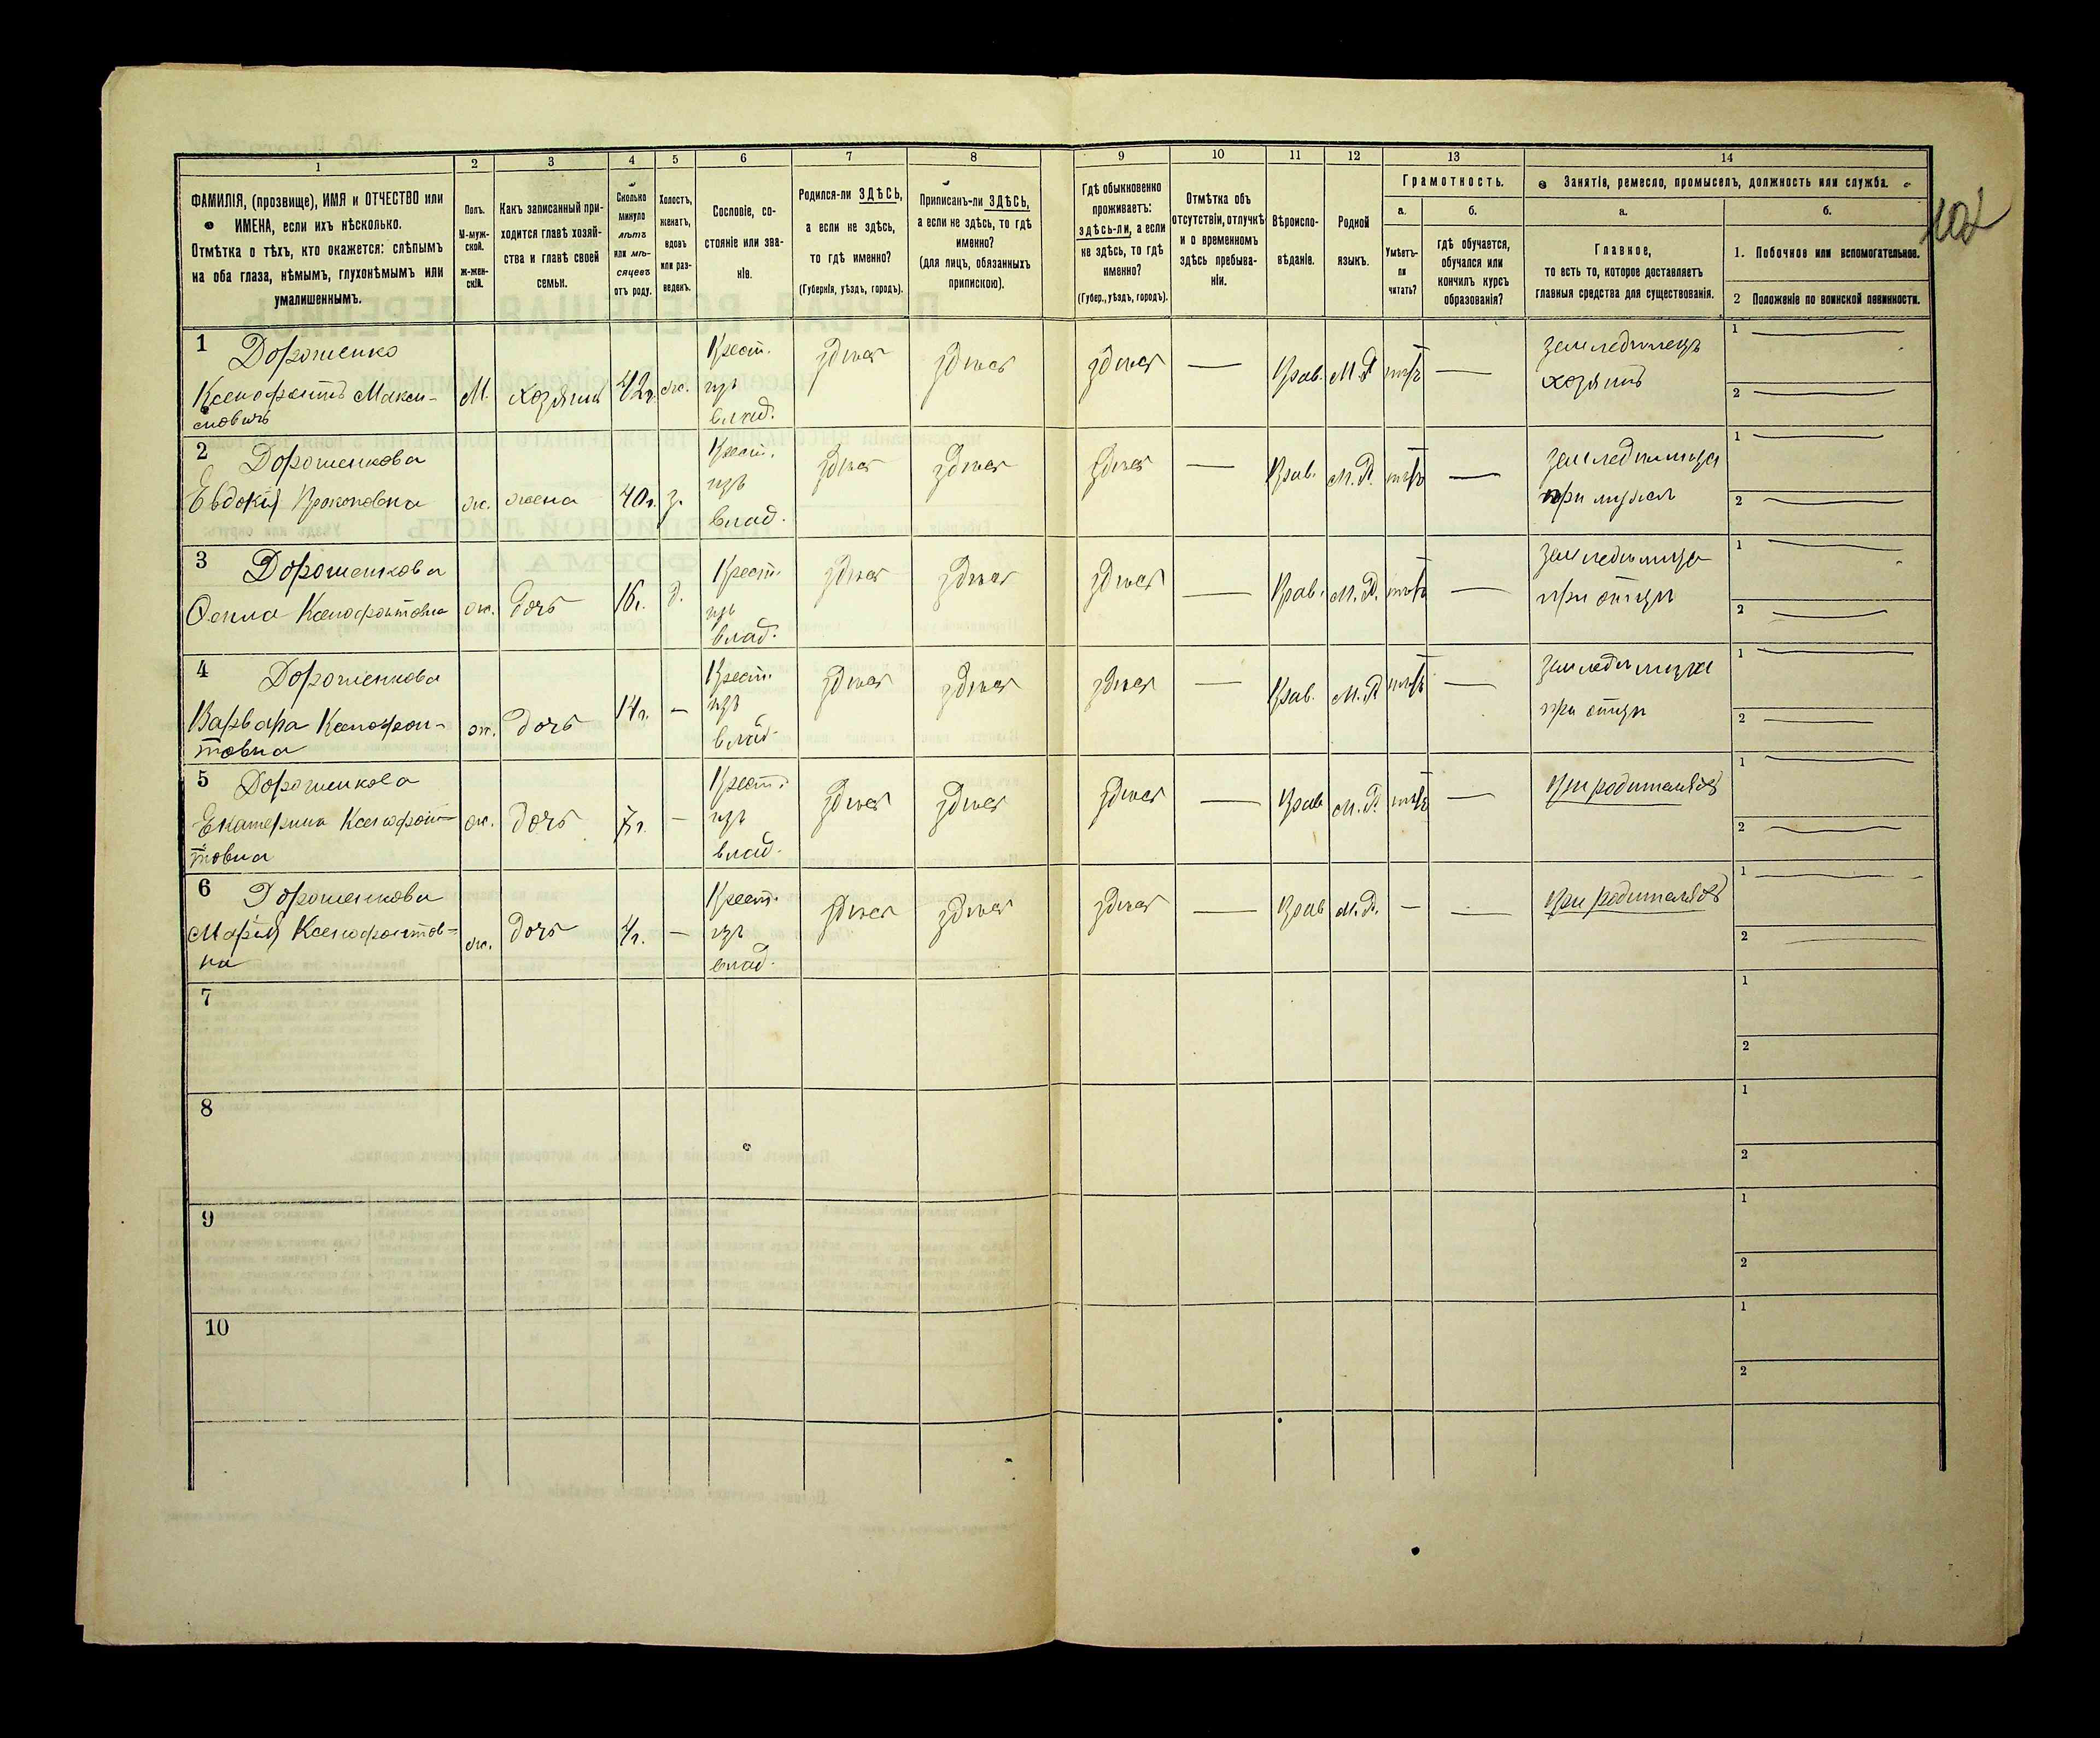 102
1 2 3 4 5 6 7 8 9 10 11 12 13 14
ФАМИЛІЯ, (прозвище), ИМЯ и ОТЧЕСТВО или
ИМЕНА, если ихъ нѣсколько.
Отмѣтка о тѣхъ, кто окажется: слѣпымъ
на оба глаза, нѣмымъ, глухонѣмымъ или
умалишеннымъ.
Полъ.
М-муж-
ской.
Ж-жен-
скій.
Какъ записанный при-
ходится главѣ хозяй-
ства и главѣ своей
семьи.
Сколько
минуло
лѣтъ
или мѣ-
сяцевъ
отъ роду.
Холостъ,
женатъ,
вдовъ
или раз-
веденъ.
Сословіе, со-
стояніе или зва-
ніе.
Родился-ли ЗДѢСЬ,
а если не здѣсь,
то гдѣ именно?
(Губернія, уѣздъ, городъ).
Приписанъ-ли ЗДѢСЬ,
а если не здѣсь, то гдѣ
именно?
(для лицъ, обязанныхъ
припискою).
Гдѣ обыкновенно
проживаетъ:
здѣсь-ли, а если
не здѣсь, то гдѣ
именно?
(Губер., уѣздъ, городъ).
Отмѣтка объ
отсутствіи, отлучкѣ
и о временномъ
здѣсь пребыва-
ніи.
Вѣроиспо-
вѣданіе.
Родной
языкъ.
Грамотность.
а.
Умѣетъ-
ли
читать?
б.
гдѣ обучается,
обучался или
кончилъ курсъ
образованія?
Занятіе, ремесло, промыселъ, должность или служба.
а.
Главное,
то есть то, которое доставляетъ
главныя средства для существованія.
б.
1. Побочное или вспомогательное.
2 Положеніе по воинской повинности.
1 Дорошенко
Ксенофонтъ Макси-
мовичъ
М.
хозяинъ
42г.
ж.
Крест.
изъ
влад.
здѣсь
здѣсь
здѣсь
—
Прав.
М.Р.
нѣтъ
—
земледѣлецъ
хозяинъ
1 —
2 —
2 Дорошенкова
Евдокія Прокоповна
ж.
жена
40г.
з.
Крест.
изъ
влад.
здѣсь
здѣсь
здѣсь
—
Прав.
М.Р.
нѣтъ
—
земледѣлица
при мужѣ
1 —
2 —
3 Дорошенкова
Ксенофонтовна
ж.
дочь
16г.
д.
Крест.
изъ
влад.
здѣсь
здѣсь
здѣсь
—
Прав.
М.Р.
нѣтъ
—
земледѣлица
при отцѣ
1 —
2 —
4 Дорошенкова
Варвара Ксенофон-
товна
ж.
дочь
14г.
—
Крест.
изъ
влад.
здѣсь
здѣсь
здѣсь
—
Прав.
М.Р.
нѣтъ
—
земледѣлица
при отцѣ
1 —
2 —
5 Дорошенкова
Екатерина Ксенофон-
товна
ж.
дочь
7г.
—
Крест.
изъ
влад.
здѣсь
здѣсь
здѣсь
—
Прав
М.Р.
нѣтъ
—
при родителяхъ
1 —
2 —
6 Дорошенкова
Марія Ксенофонтов-
на
ж.
дочь
4г.
—
Крест.
изъ
влад.
здѣсь
здѣсь
здѣсь
—
Прав
М.Р.
—
—
при родителяхъ
1 —
2 —
7
1
2
8
1
2
9
1
2
10
1
2